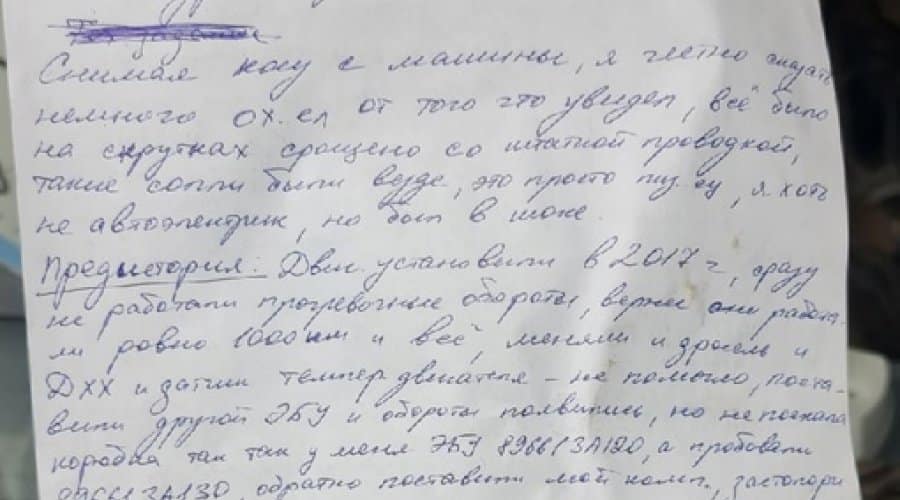 Снимая косу с машины, я честно сказать
немного ох.ел от того что увидел, всё было
на скрутках срощено со штатной проводкой,
такие сопли были везде, это просто пиз.ец, я хоть
не автоэлектрик, но был в шоке.
Предыстория: Двиг. установили в 2017 г, сразу
не работали прогревочные обороты, вернее они работа-
ли ровно 1000 км и всё, меняли и дросель и
ДХХ и датчик темпер двигателя - не помогло, поста-
вили другой ЭБУ и обороты появились, но не поехала
коробка так так у меня ЭБУ 89661 3А120, а пробовали
89661 3А130, обратно поставили мой комп,